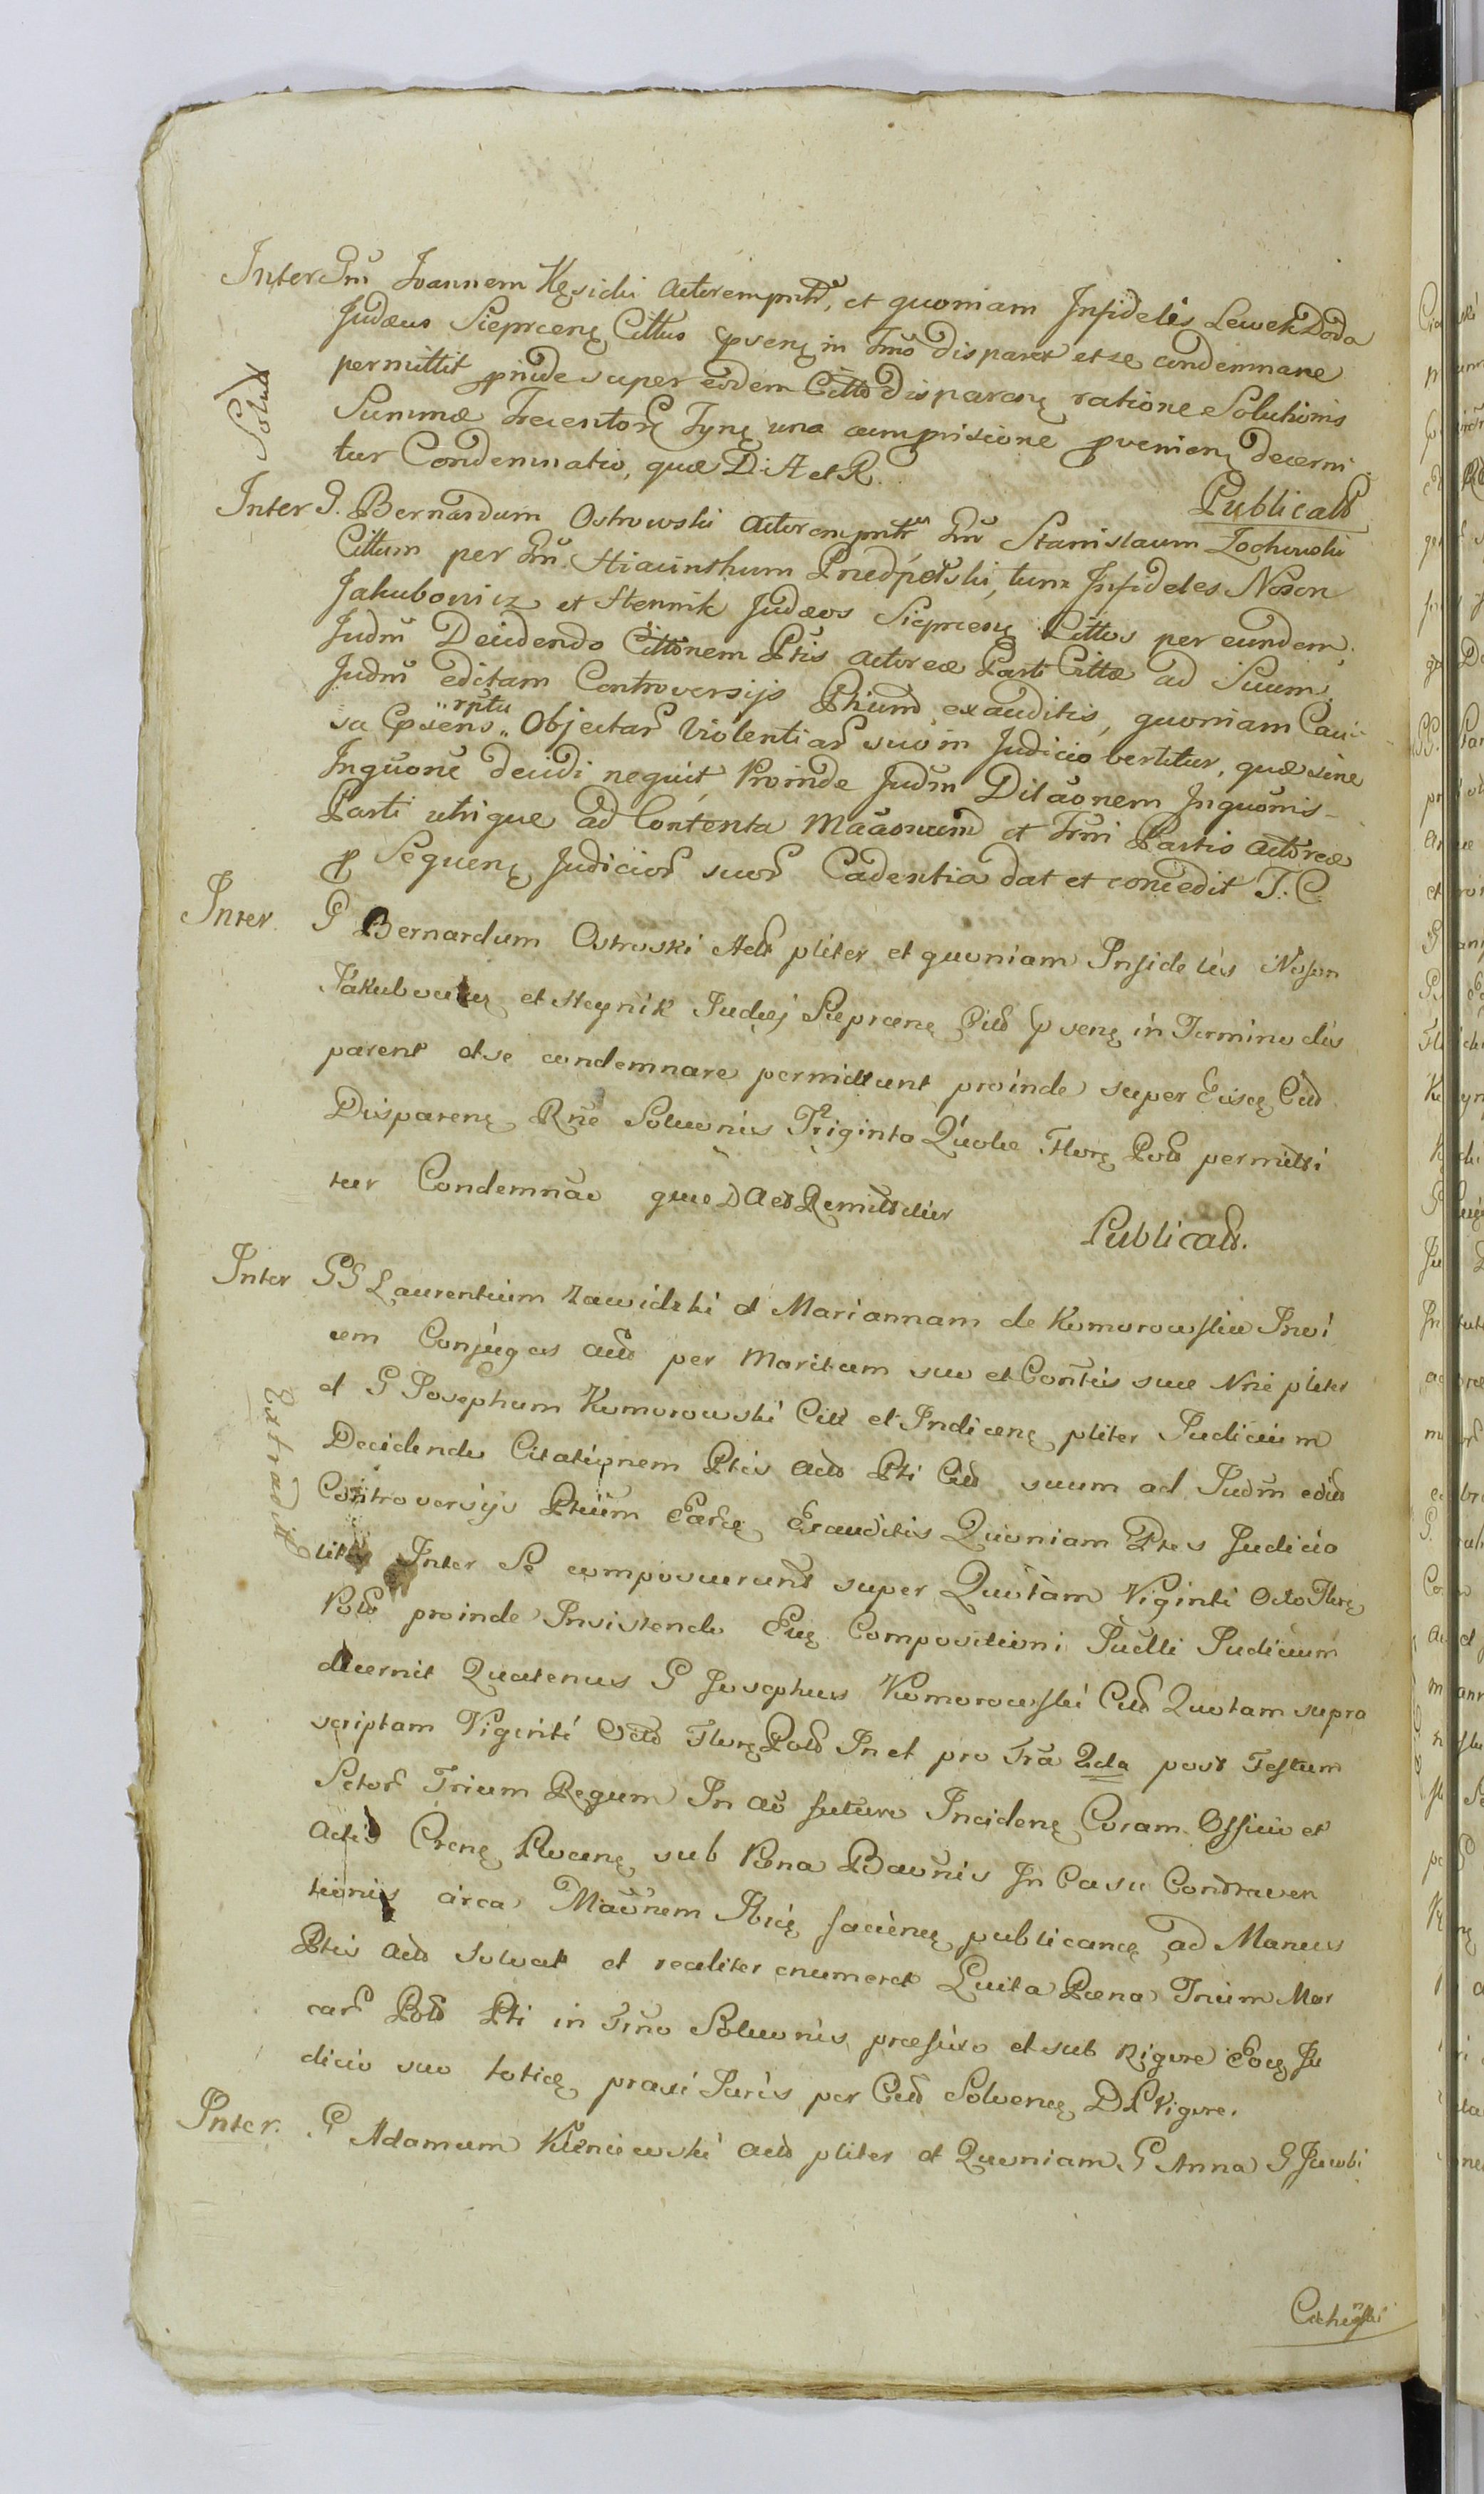 Inter Gm Joannem Kęsicki actorem pntr, et quoniam Infidelis Lewek Doda
Judæus Sieprcens Cittus pvens in Tmo disparet et se condemnare
permittit pinde super eodem Citto disparens ratione Solutionis
Solut
Summæ Trecentor Tyns una cum prisione pveniens decerni
tur Condemnatio, quæ D. A et R.
Publicat
Inter G. Bernardum Ostrowski actorem pntr Gm Stanislaum Zochowski
Cittum per Gm Hiacinthum, tum Infideles Noson
Jakubowicz et Hennik Judæos Sieprcens Cittos per eundem,
Judm Decidendo Cittonem Ptis actoreæ Parti Cittæ ad Suum
Judm editam Controversijs Ptium exauditis, quoniam Cau
rptu
sa psens Objectar Violentiar suo in Judicio vertitur, quæ sine
Inquone decidi nequit, Proinde Judm Dilaonem Inquonis
Parti utrique ad Contenta Maaonum et Trmi Partis actoreæ
p Sequens Judicior suor Cadentia dat et concedit T. C.
Inter G Bernardum Ostroski Act pliter et quoniam Infideles Noson
Jakubowicz et Heynik Judæj Sieprcens Citt pvens in Termino dis
parent et se condemnare permittunt proinde super Eisd Citt
Disparens Rne Soluonis Triginta Flors Pold permitti
tur Condemnao quæ D Act Remittdur
Publicat.
Inter GG Laurentium Zawidzki et Mariannam de Komorowskie Invi
cem Conjuges actt per Maritum suo et Contis suæ Nnie pliter
et G Josephum Komorowski Citt et Indicens pliter Judicium
Extradit
Decidendo Citationem Ptis actt Pti Citt suum ad Judm editt
Controversijs Ptium Exauditis Quoniam Ptes Judicio
Inter Se composuerunt super Quotam Viginti Octo Flors
Pold proinde Insistendo Compositioni Judicium
decernit Quatenus G Josephus Komorowski Citt Quotam supra
scriptam Viginti Octo Flors Pold In et pro Fra 2da post Festum
Sctor Trium Regum In ao futuro Incidens Coram Officio et
Actis Crens Plocens sub Pœna Bauonis In Casu Contraven
tionis circa Maonem faciens publicans ad Manus
Ptis actt solvat et realiter enumeret Luita Pœna Trium Mar
car Pold Pti in Trno Soluonis præfixo et sub Rigore Ju
dicio suo toties praxi Juris per Citt Solvens D L Vigore.
Inter. G Adamum Kleniewski actt pliter et Quoniam G Anna G Jacobi